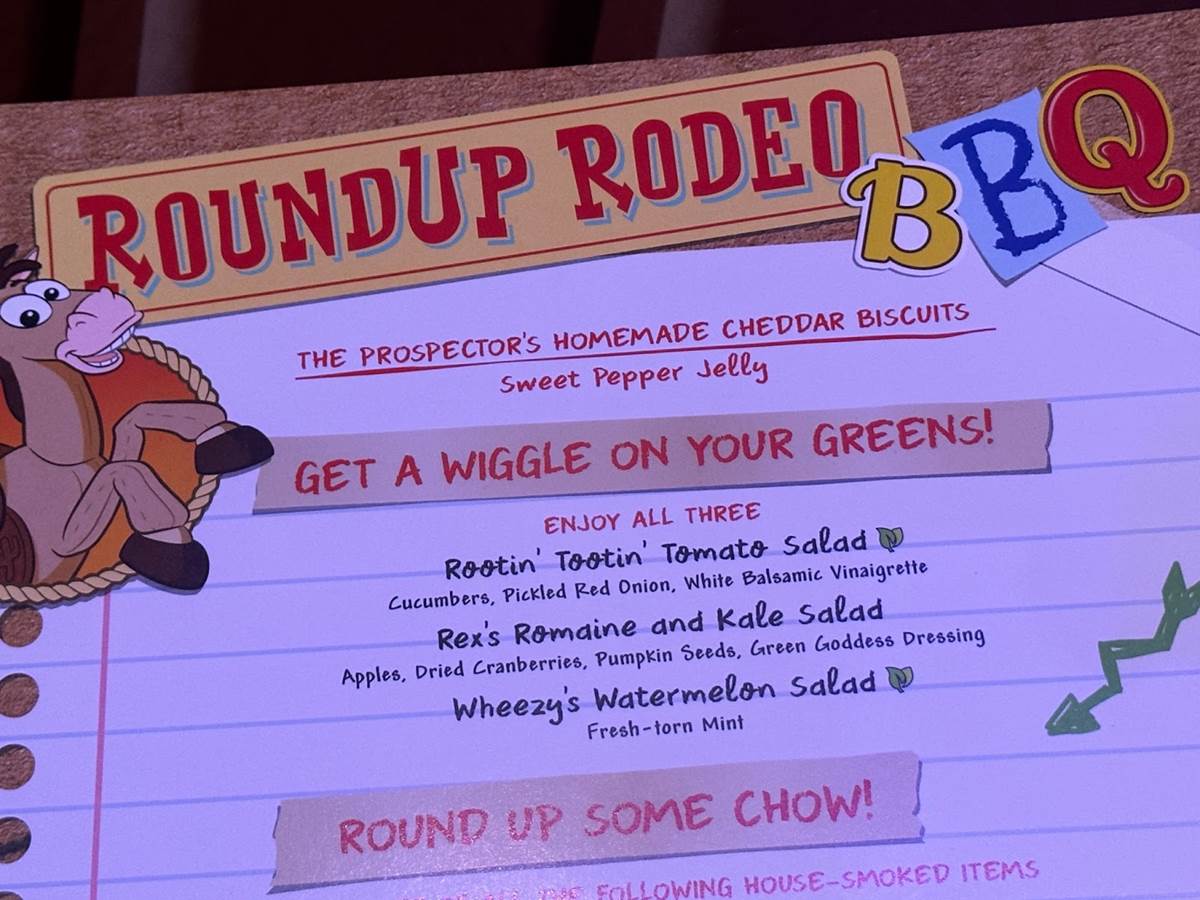 ROUNDUP RODEO BBQ
THE PROSPECTOR'S HOMEMADE CHEDDAR BISCUITS
Sweet Pepper Jelly
GET A WIGGLE ON YOUR GREENS!
ENJOY ALL THREE
Rootin' Tootin' Tomato Salad
Cucumbers, Pickled Red Onion, White Balsamic Vinaigrette
Rex's Romaine and Kale Salad
Apples, Dried Cranberries, Pumpkin Seeds, Green Goddess Dressing
Wheezy's Watermelon Salad
Fresh-torn Mint
ROUND UP SOME CHOW!
THE FOLLOWING HOUSE-SMOKED ITEMS